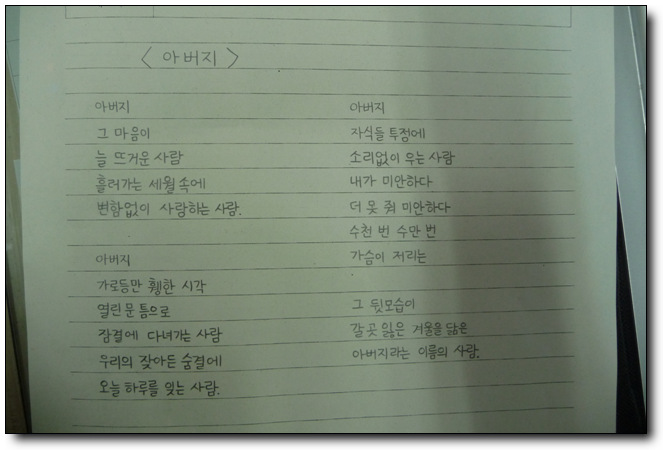 < 아버지 >
아버지
그 마음이
늘 뜨거운 사람
흘러가는 세월 속에
변함없이 사랑하는 사람.
아버지
가로등만 휑한 시각
열린 문 틈으로
잠결에 다녀가는 사람
우리의 잦아든 숨결에
오늘 하루를 잊는 사람.
아버지
자식들 투정에
소리없이 우는 사람
내가 미안하다
더 못 줘 미안하다
수천 번 수만 번
가슴이 저리는
그 뒷모습이
갈 곳 잃은 겨울을 닮은
아버지라는 이름의 사람.